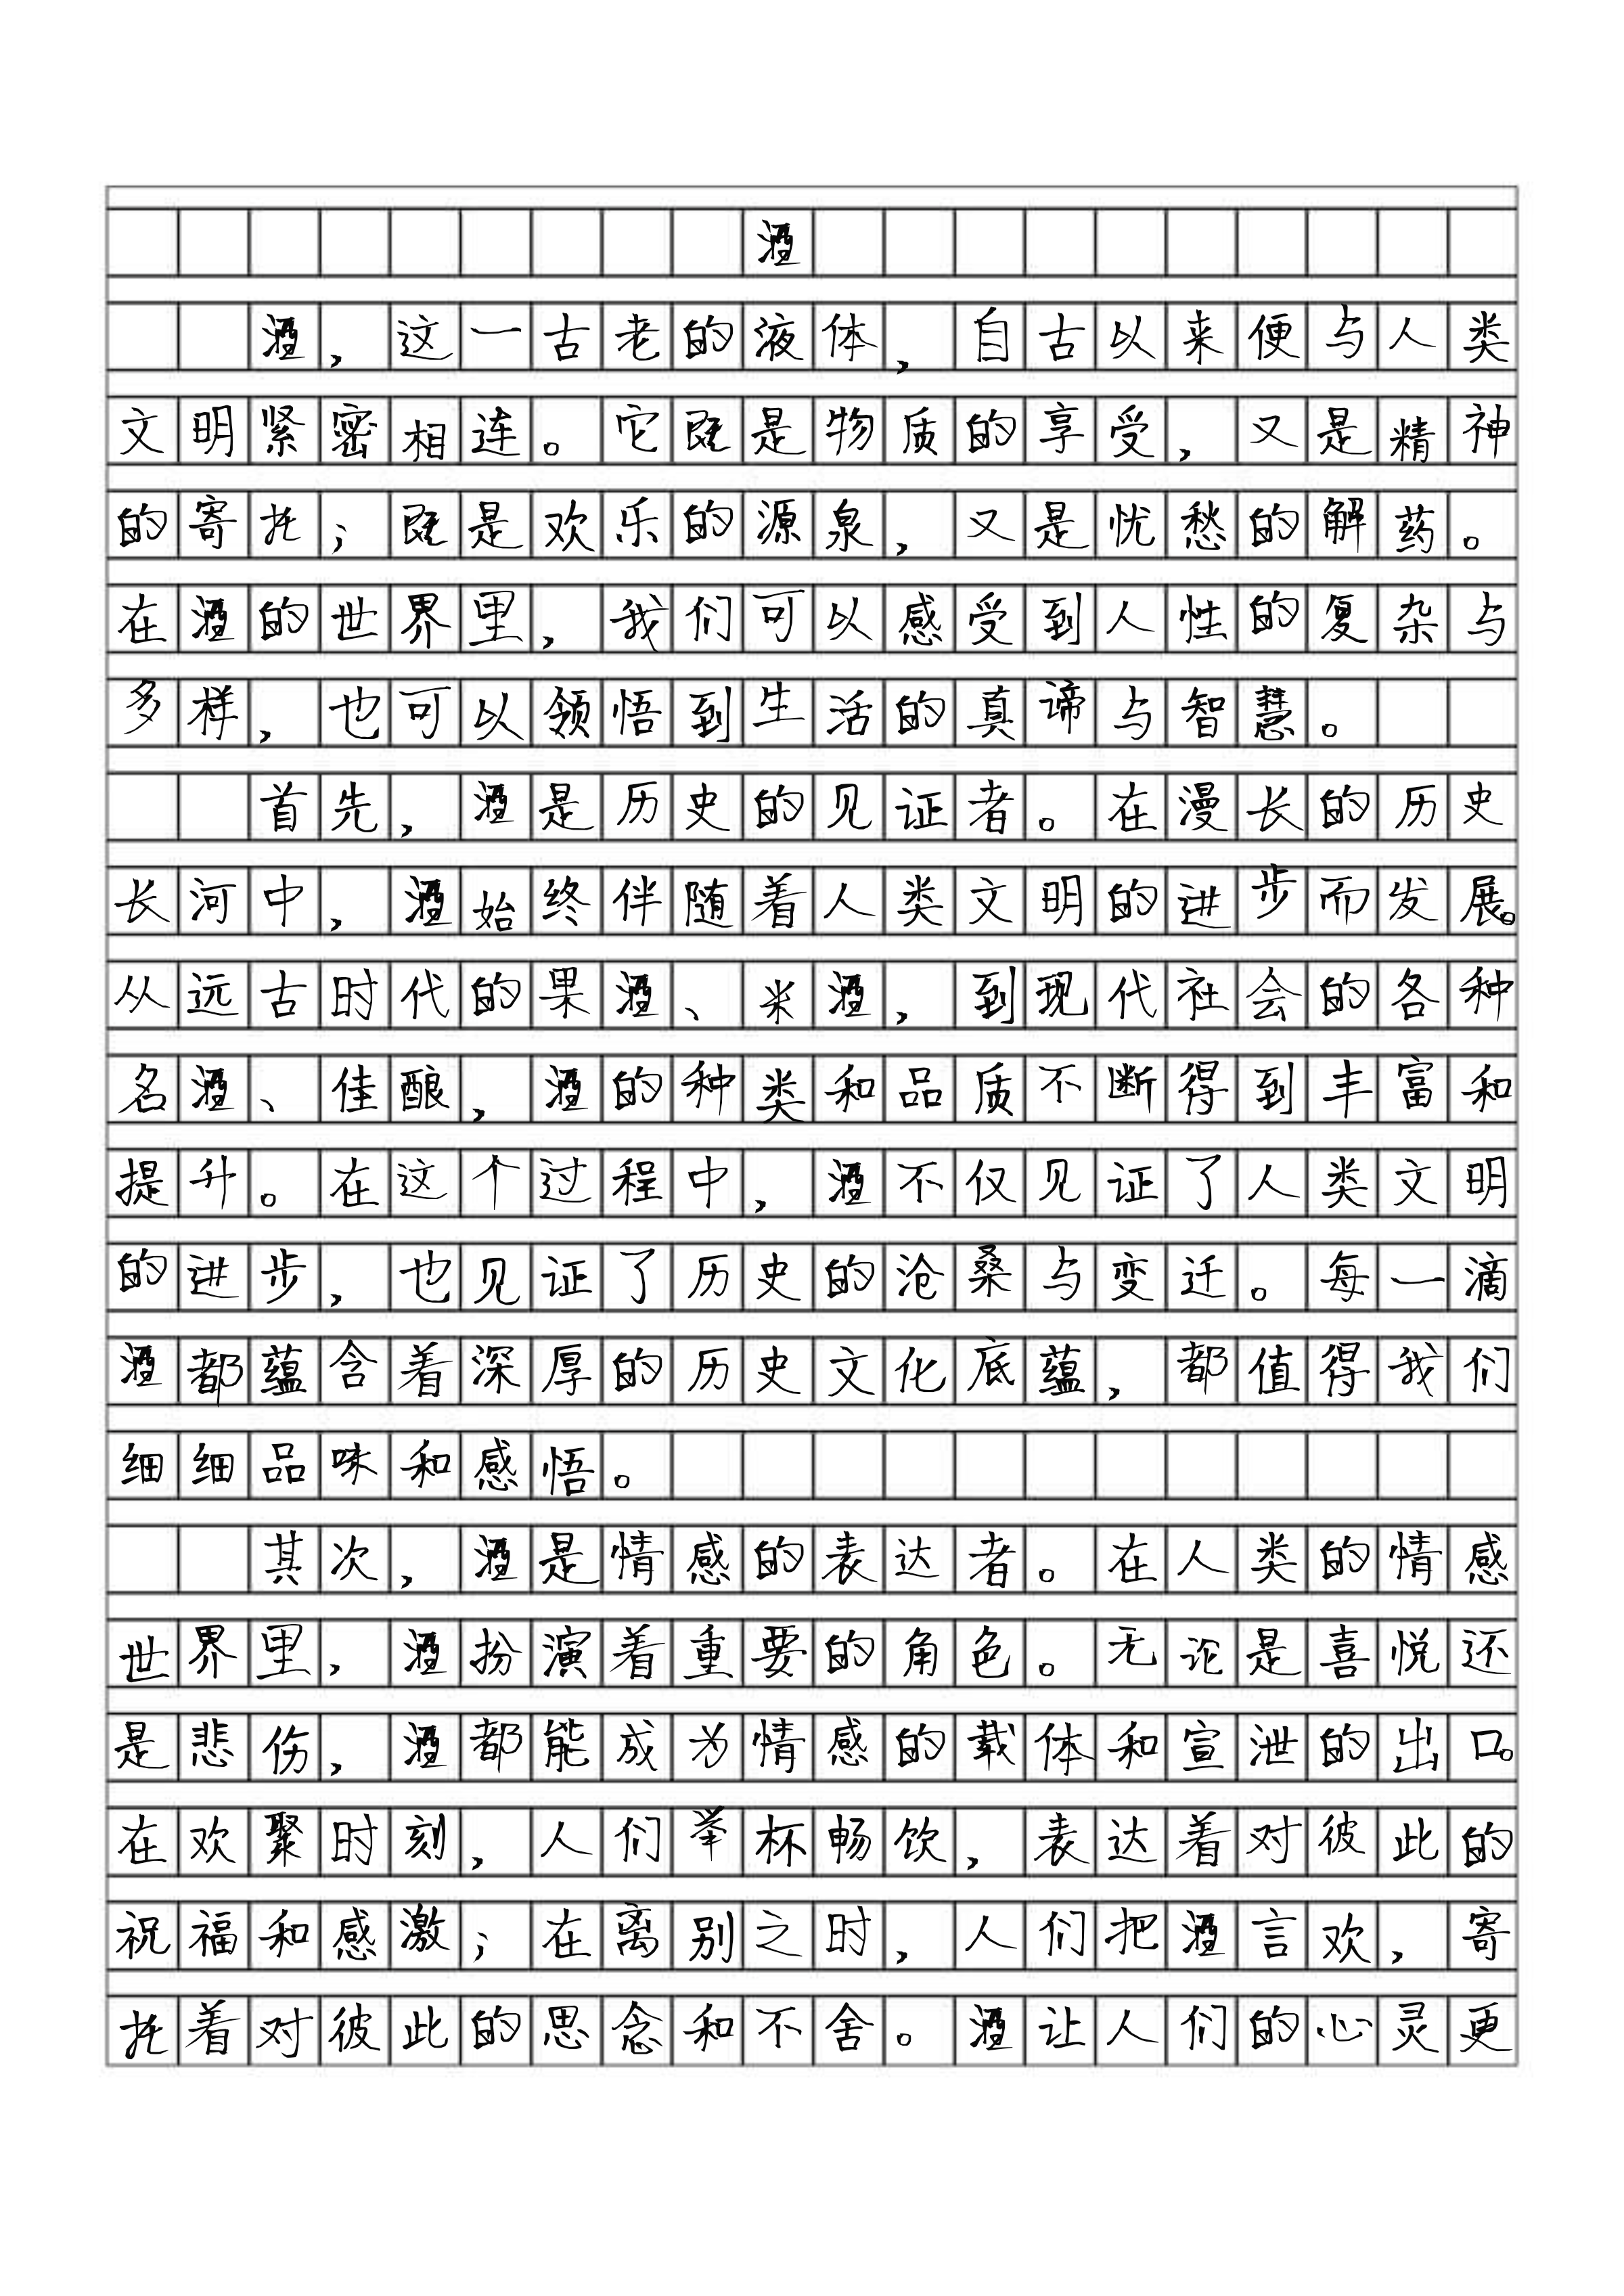 酒
酒，这一古老的液体，自古以来便与人类
文明紧密相连。它既是物质的享受，又是精神
的寄托；既是欢乐的源泉，又是忧愁的解药。
在酒的世界里，我们可以感受到人性的复杂与
多样，也可以领悟到生活的真谛与智慧。
首先，酒是历史的见证者。在漫长的历史
长河中，酒始终伴随着人类文明的进步而发展。
从远古时代的果酒、米酒，到现代社会的各种
名酒、佳酿，酒的种类和品质不断得到丰富和
提升。在这个过程中，酒不仅见证了人类文明
的进步，也见证了历史的沧桑与变迁。每一滴
酒都蕴含着深厚的历史文化底蕴，都值得我们
细细品味和感悟。
其次，酒是情感的表达者。在人类的情感
世界里，酒扮演着重要的角色。无论是喜悦还
是悲伤，酒都能成为情感的载体和宣泄的出口。
在欢聚时刻，人们举杯畅饮，表达着对彼此的
祝福和感激；在离别之时，人们把酒言欢，寄
托着对彼此的思念和不舍。酒让人们的心灵更